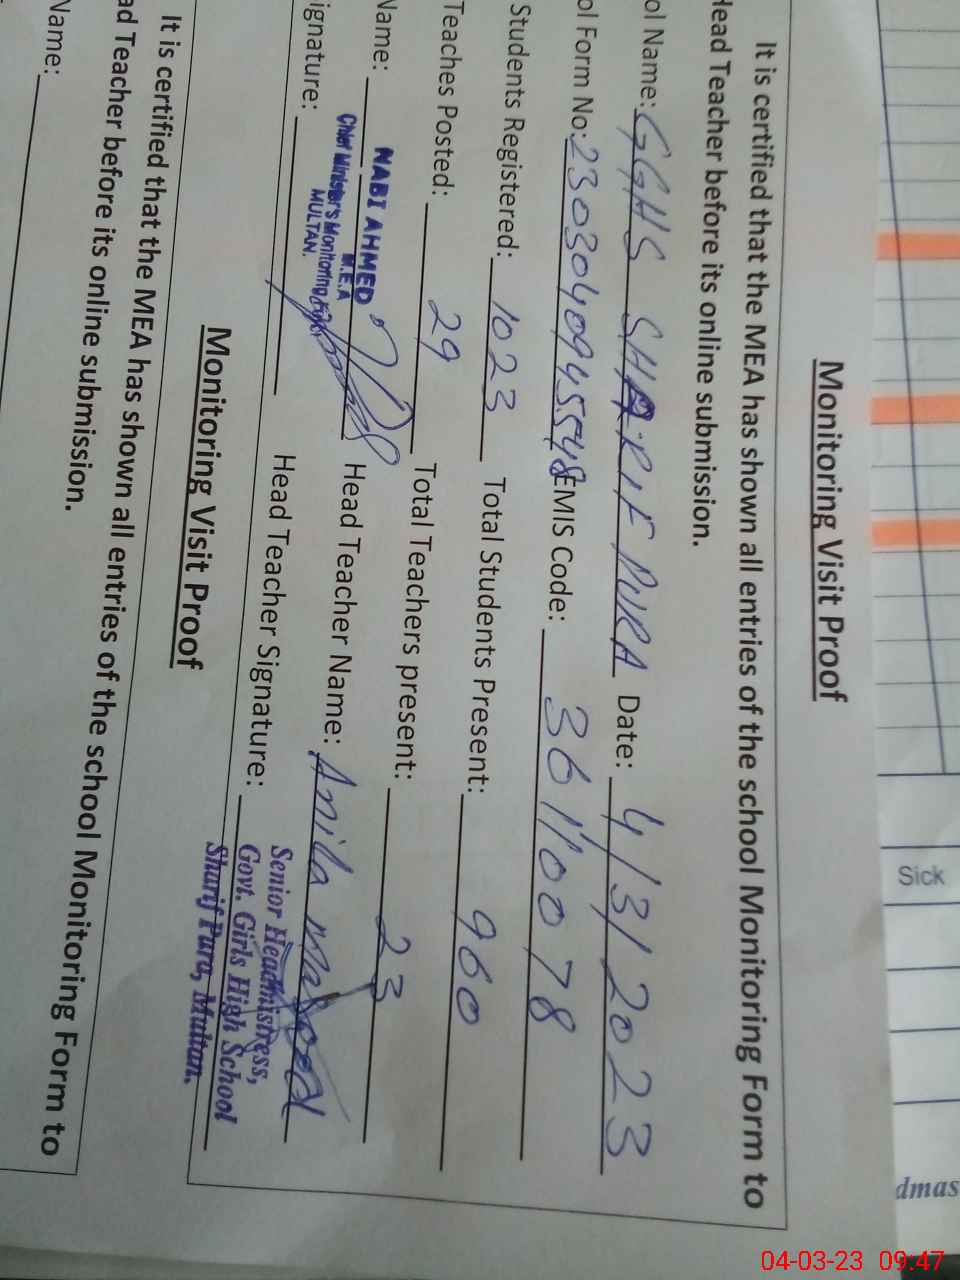 Monitoring Visit Proof
It is certified that the MEA has shown all entries of the school Monitoring Form to
Head Teacher before its online submission.
ol Name: GGHS SHARIF PURA Date: 4/3/2023
ol Form No: EMIS Code: 36110078
Students Registered: 1023 Total Students Present: 960
Teaches Posted: 29 Total Teachers present: 23
Name: NABI AHMED Head Teacher Name: Anila
M.E.A
Chief Minister's Monitoring
MULTAN.
ignature: Head Teacher Signature:
Senior Headmistress,
Govt. Girls High School
Sharif Pura, Multan.
Monitoring Visit Proof
It is certified that the MEA has shown all entries of the school Monitoring Form to
ad Teacher before its online submission.
Name:
Sick
dmas
04-03-23 09:47